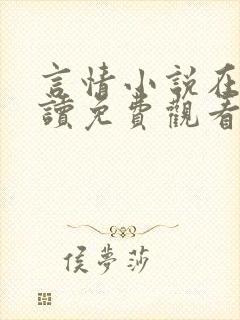 言情小説在
讀免費觀看
侯夢莎